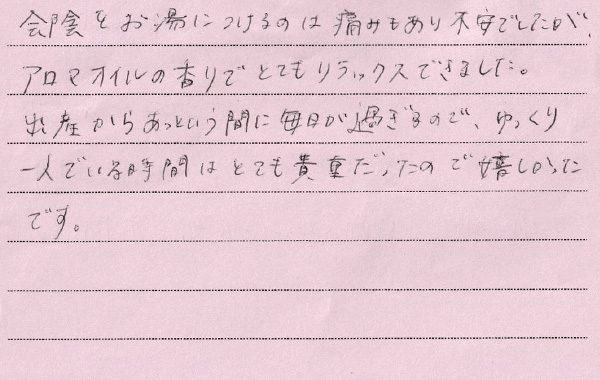 会陰をお湯につけるのは痛みもあり不安でしたが、
アロマオイルの香りでとてもリラックスできました。
出産からあっという間に毎日が過ぎるので、ゆっくり
一人でいる時間はとても貴重だったので嬉しかった
です。